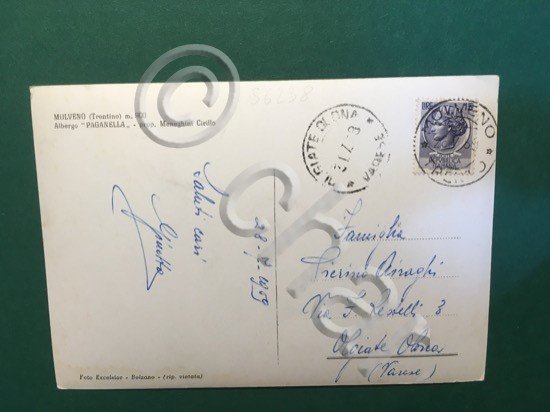 MOLVENO (Trentino) m. 900
Albergo "PAGANELLA" - prop. Meneghini Cirillo
56238
OLGIATE OLONA
MOLVENO
Saluti cari
Ginetta
28-7-1959
Famiglia
Pierino Airaghi
Via F. Rosselli 3
Olgiate Olona
(Varese)
Foto Excelsior - Bolzano - (rip. vietata)